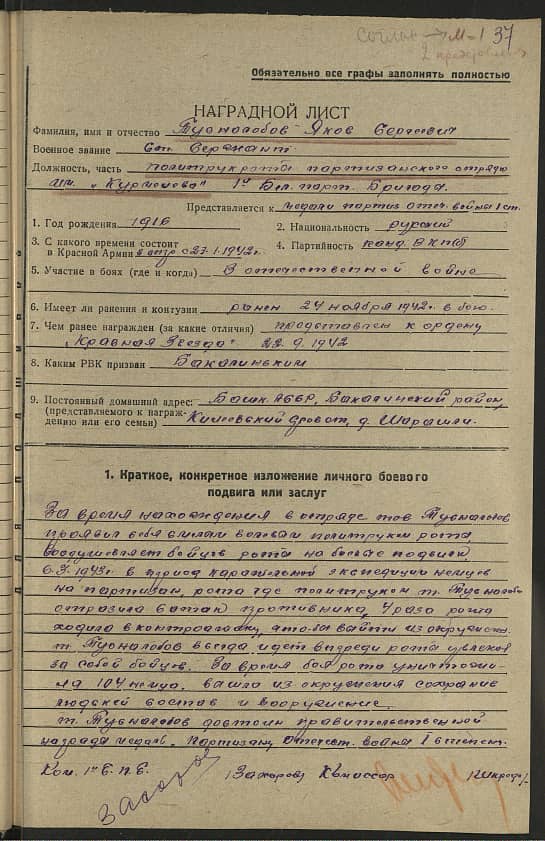 37
Обязательно все графы заполнять полностью
НАГРАДНОЙ ЛИСТ
Фамилия, имя и отчество Тубналобов Яков Сергеевич
Военное звание Ст. Сержант
Должность, часть политрук рота партизанского отряда
им. „Курмелева" 1й Бел. парт. Бригада.
Представляется к медали партиз. отеч. война I ст.
1. Год рождения 1916
2. Национальность русский
3. С какого времени состоит
в Красной Армии с 23.1.1942г.
4. Партийность канд. ВКПб
5. Участие в боях (где и когда) В отечественной войне
6. Имеет ли ранения и контузии ранен 24 ноября 1942г. в бою.
7. Чем ранее награжден (за какие отличия) представлен к ордену
„Красная Звезда" 1942
8. Каким РВК призван Бакалинским
9. Постоянный домашний адрес: Башк. АССР, Бакалинский район,
(представляемого к награж-
дению или его семьи) д. Шарашли.
1. Краткое, конкретное изложение личного боевого
подвига или заслуг
За время нахождения в отряде тов. Тубналобов
проявил себя смелым волевым политруком рота,
воодушевляет бойцов рота на боевые подвиги,
1943г. в период карательной экспедиции немцев
на партизан, рота где политруком т. Тубналобов
отразила 6 атак противника, 4 раза рота
ходила в контратаку, чтобы выйти из окружения.
т. Тубналобов всегда идет впереди рота увлекая
за собой бойцов. За время боя рота уничтожи-
ла 104 немца, вышла из окружения сохранив
людской состав и вооружение.
т. Тубналобов достоин правительственной
награда медаль. Партизану Отечест. война I степен.
Захаров Комиссар